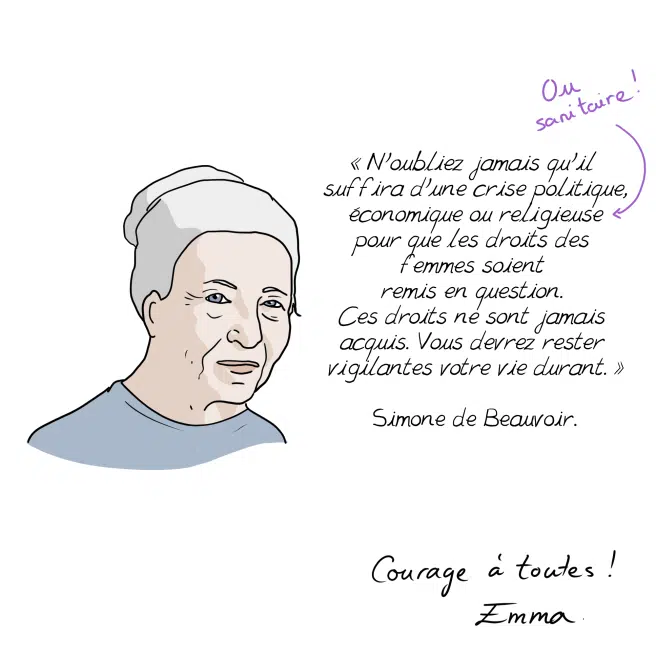 Ou
sanitaire !
« N'oubliez jamais qu'il
suffira d'une crise politique,
économique ou religieuse
pour que les droits des
femmes soient
remis en question.
Ces droits ne sont jamais
acquis. Vous devrez rester
vigilantes votre vie durant. »
Simone de Beauvoir.
Courage à toutes !
Emma.